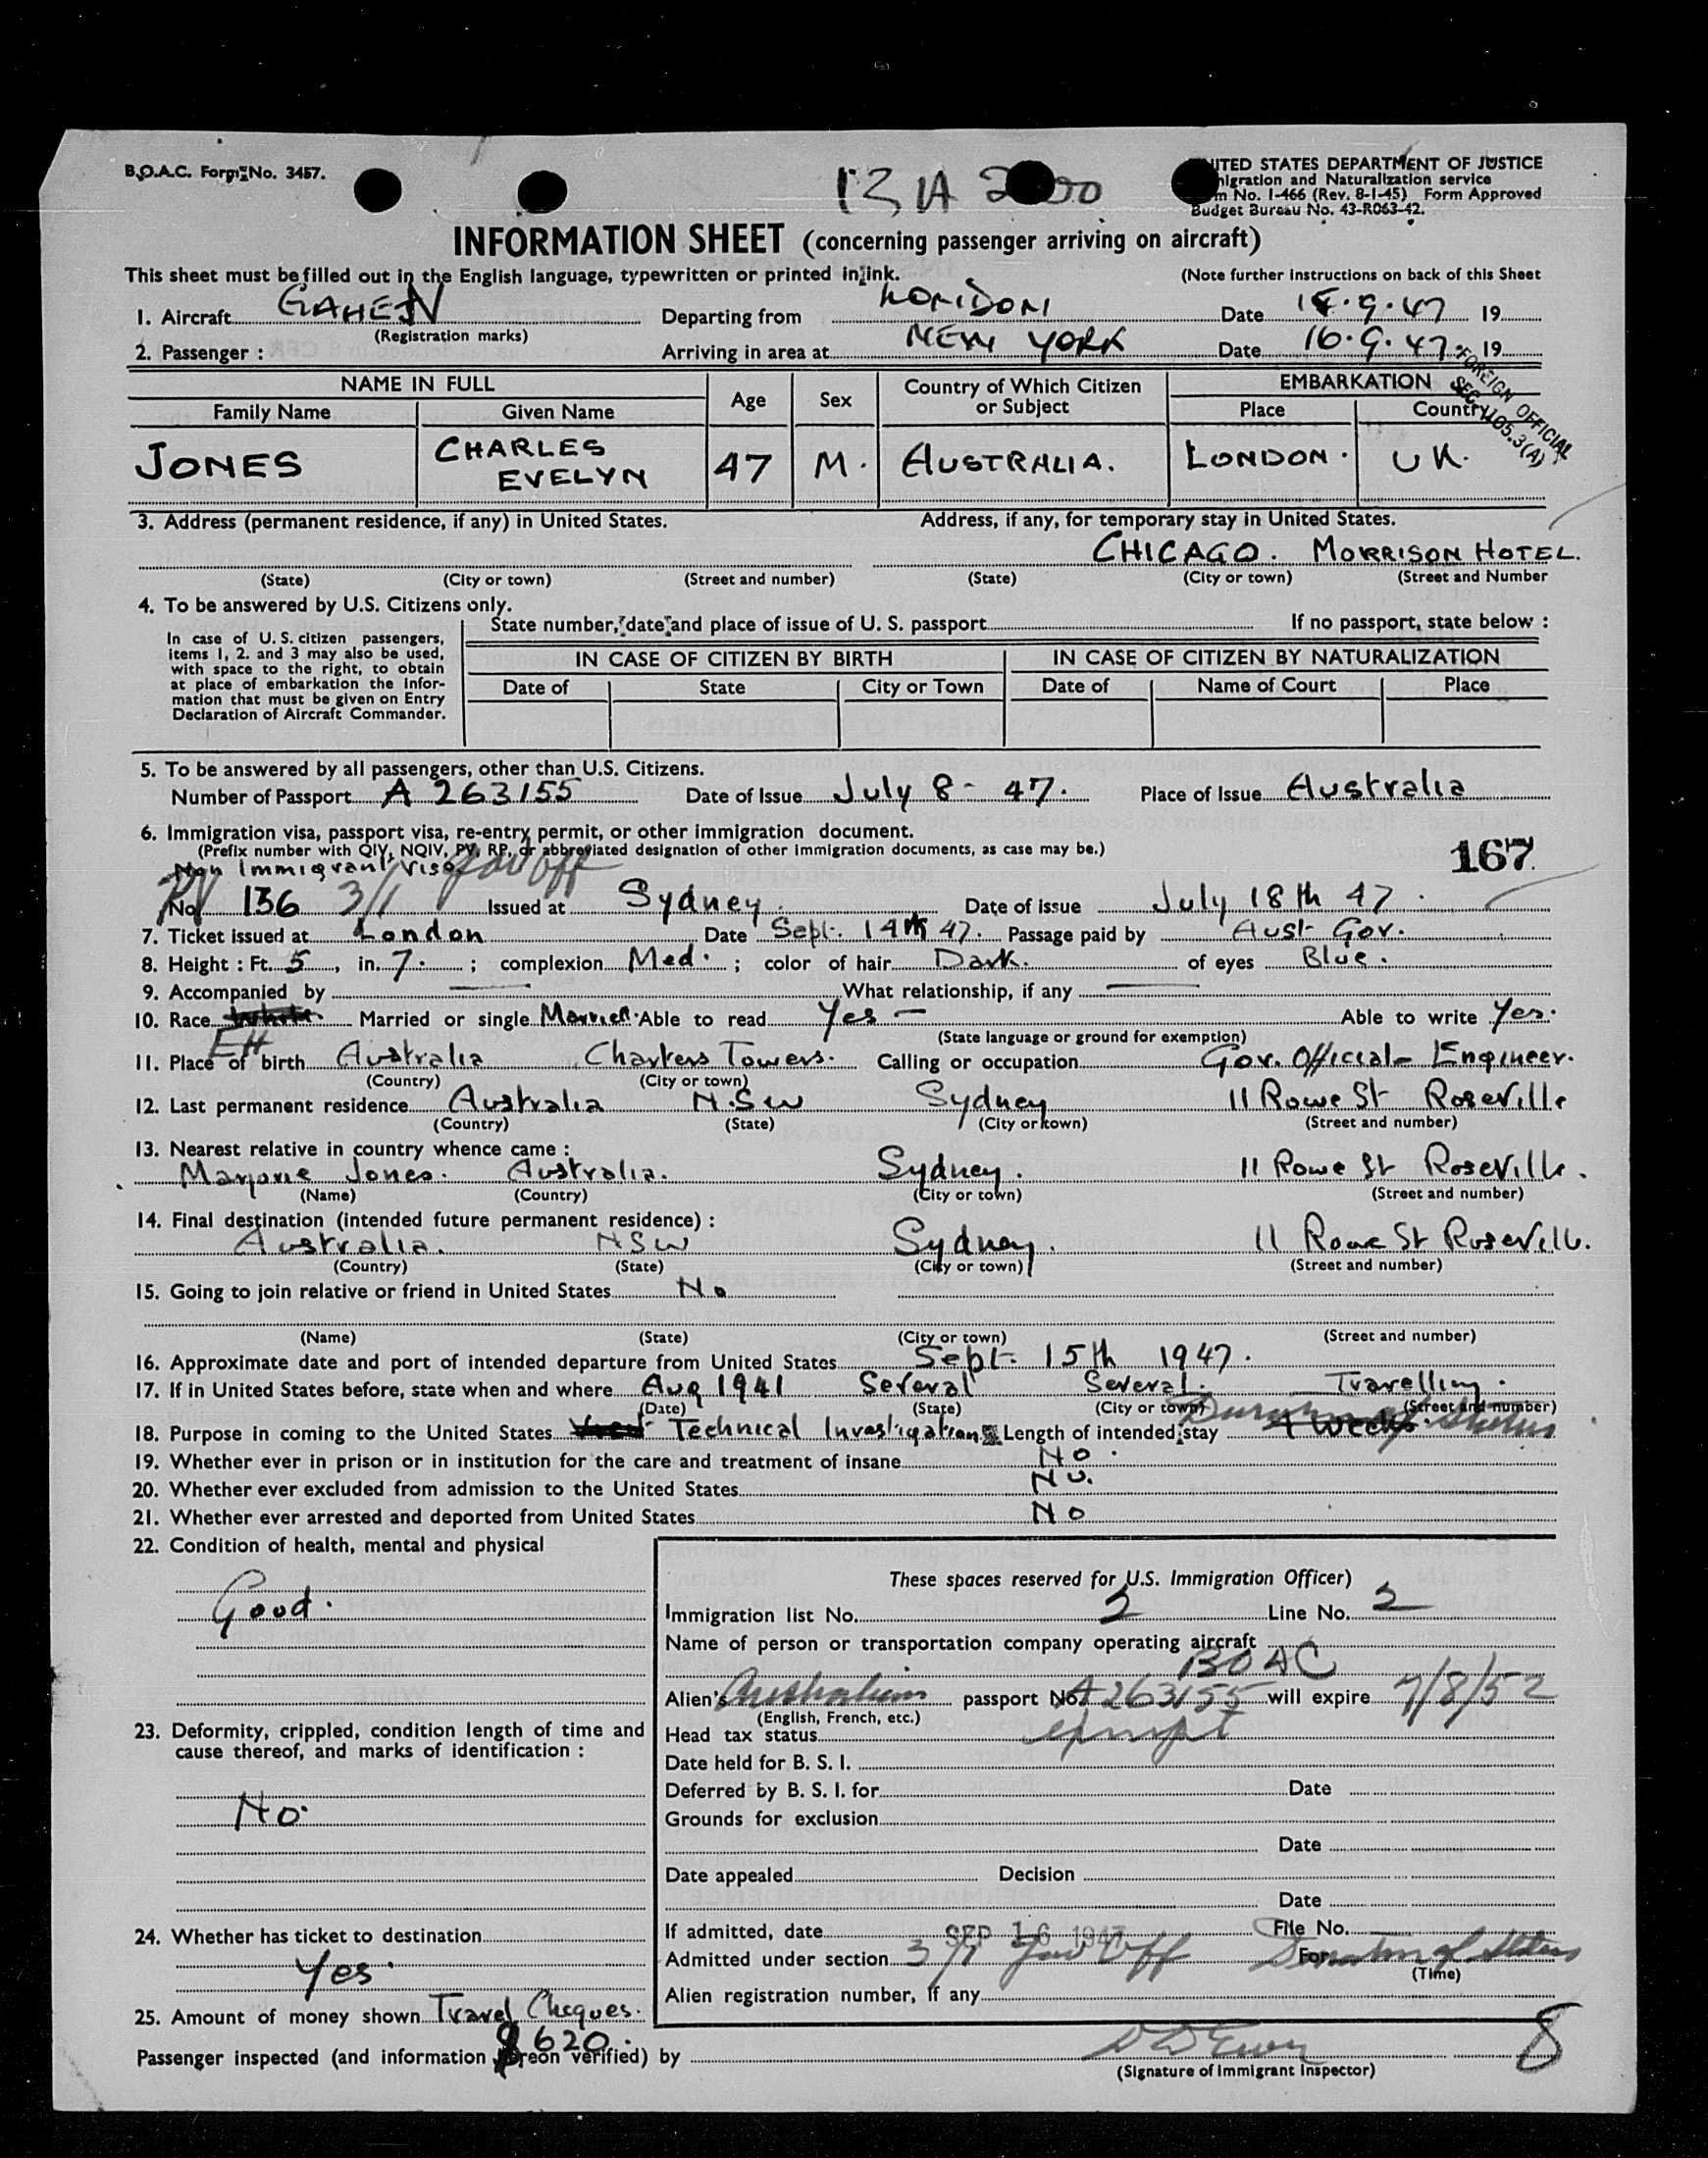 B.O.A.C. Form No. 3457.
13 1A 2 00
ITED STATES DEPARTMENT OF JUSTICE
igration and Naturalization service
m No. I-466 (Rev. 8-1-45) Form Approved
Budget Bureau No. 43-R063-42.
INFORMATION SHEET (concerning passenger arriving on aircraft)
This sheet must be filled out in the English language, typewritten or printed in ink. (Note further instructions on back of this Sheet
1. Aircraft GAHEN Departing from LONDON Date 15.9.47 19
(Registration marks)
2. Passenger : Arriving in area at NEW YORK Date 16.9.47. 19
FOREIGN OFFICIAL
SEC. 1105.3(A)
NAME IN FULL Age Sex Country of Which Citizen or Subject EMBARKATION
Family Name Given Name Place Country
JONES CHARLES EVELYN 47 M. AUSTRALIA. LONDON. UK.
3. Address (permanent residence, if any) in United States. Address, if any, for temporary stay in United States.
CHICAGO. MORRISON HOTEL.
(State) (City or town) (Street and number) (State) (City or town) (Street and Number
4. To be answered by U.S. Citizens only.
State number, date and place of issue of U. S. passport If no passport, state below :
In case of U. S. citizen passengers,
items 1, 2. and 3 may also be used,
with space to the right, to obtain
at place of embarkation the infor-
mation that must be given on Entry
Declaration of Aircraft Commander.
IN CASE OF CITIZEN BY BIRTH IN CASE OF CITIZEN BY NATURALIZATION
Date of State City or Town Date of Name of Court Place
5. To be answered by all passengers, other than U.S. Citizens.
Number of Passport A 263155 Date of Issue July 8 - 47. Place of Issue Australia
6. Immigration visa, passport visa, re-entry permit, or other immigration document.
(Prefix number with QIV, NQIV, PV, RP, or abbreviated designation of other immigration documents, as case may be.)
167
Non Immigrant Visa gov off
PV No. 136 3/1 Issued at Sydney. Date of issue July 18th 47.
7. Ticket issued at London Date Sept. 14th 47. Passage paid by Aust- Gov.
8. Height : Ft. 5, in. 7. ; complexion Med. ; color of hair Dark. of eyes Blue.
9. Accompanied by — What relationship, if any —
10. Race White. Married or single Married. Able to read Yes - Able to write Yes.
(State language or ground for exemption)
11. Place of birth Australia Charters Towers. Calling or occupation Gov. Official - Engineer.
(Country) (City or town)
12. Last permanent residence Australia N.S.W Sydney 11 Rowe St Roseville
(Country) (State) (City or town) (Street and number)
13. Nearest relative in country whence came :
Marjorie Jones. Australia. Sydney. 11 Rowe St Roseville.
(Name) (Country) (City or town) (Street and number)
14. Final destination (intended future permanent residence) :
Australia. NSW Sydney. 11 Rowe St Roseville.
(Country) (State) (City or town) (Street and number)
15. Going to join relative or friend in United States No
(Name) (State) (City or town) (Street and number)
16. Approximate date and port of intended departure from United States Sept. 15th 1947.
17. If in United States before, state when and where Aug 1941 Several Several. Travelling.
(Date) (State) (City or town) (Street and number)
Duration of Status
18. Purpose in coming to the United States Technical Investigations Length of intended stay 4 Weeks.
19. Whether ever in prison or in institution for the care and treatment of insane No.
20. Whether ever excluded from admission to the United States No.
21. Whether ever arrested and deported from United States No
22. Condition of health, mental and physical
Good.
23. Deformity, crippled, condition length of time and
cause thereof, and marks of identification :
No.
24. Whether has ticket to destination
Yes.
25. Amount of money shown Travel Cheques.
$620.
These spaces reserved for U.S. Immigration Officer)
Immigration list No. 2 Line No. 2
Name of person or transportation company operating aircraft
BOAC
Alien's Australian passport No. A263155 will expire 7/8/52
(English, French, etc.)
Head tax status exempt
Date held for B. S. I.
Deferred by B. S. I. for Date
Grounds for exclusion
Date
Date appealed Decision
Date
If admitted, date SEP 16 1947 File No.
Admitted under section 3/1 Gov Off For Duration of Status
(Time)
Alien registration number, if any
Passenger inspected (and information hereon verified) by
(Signature of Immigrant Inspector)
8